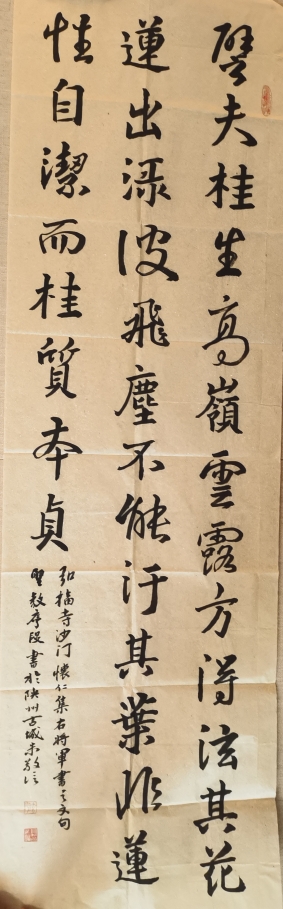 譬夫桂生高嶺雲露方得泫其花
蓮出渌波飛塵不能汙其葉非蓮
性自潔而桂質本貞
弘福寺沙门懷仁集右将軍書之文句
聖教序段書於陕州古城